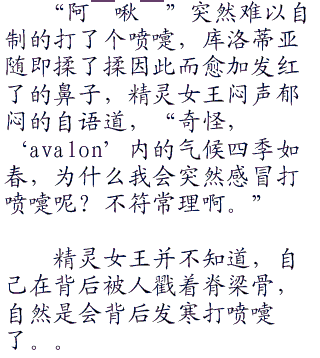 “阿——啾——”突然难以自
制的打了个喷嚏，库洛蒂亚
随即揉了揉因此而愈加发红
了的鼻子，精灵女王闷声郁
闷的自语道，“奇怪，
‘avalon’内的气候四季如
春，为什么我会突然感冒打
喷嚏呢？不符常理啊。”
精灵女王并不知道，自
己在背后被人戳着脊梁骨，
自然是会背后发寒打喷嚏
了。。